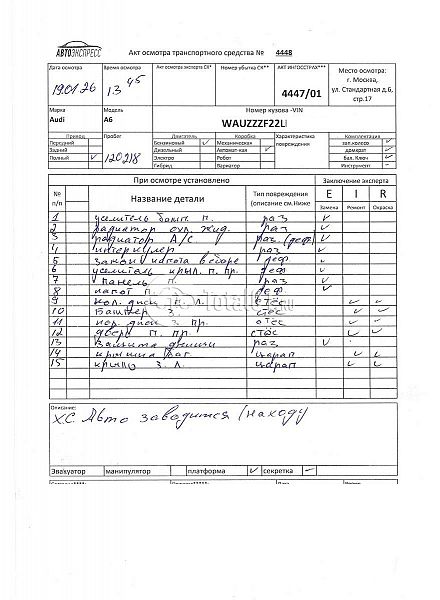 АВТОЭКСПРЕСС
Акт осмотра транспортного средства № 4448
Дата осмотра Время осмотра Акт осмотра эксперта СК* Номер убытка СК** АКТ ИНГОССТРАХ*** Место осмотра:
19.01.26 13 45 4447/01 г. Москва,
ул. Стандартная д.6,
стр.17
Марка Модель Номер кузова -VIN
Audi A6 WAUZZZF22L
Привод Пробег Двигатель Коробка Характеристика Комплектация
Передний Бензиновый ✓ Механическая повреждения зап.колесо ✓
Задний Дизельный Автомат-кая ✓ домкрат ✓
Полный ✓ 120218 Электро Робот Бал. Ключ ✓
Гибрид Вариатор Инструмент ✓
При осмотре установлено Заключение эксперта
№ Название детали Тип повреждения E I R
п/п (описание см.Ниже Замена Ремонт Окраска
1 усилитель бамп. п. раз ✓
2 радиатор охл. жид. раз ✓
3 радиатор А/С раз. (деф) ✓
4 интеркулер раз ✓
5 замок капота в сборе деф. ✓
6 усилитель крыл. п. пр. деф ✓
7 панель п. раз ✓
8 капот п. деф. ✓
9 кол. диск п. л. отес ✓ ✓
10 Бампер з. стес ✓ ✓
11 кол. диск з. пр. отес ✓ ✓
12 дверь п. пр. стес ✓ ✓
13 защита днища раз ✓
14 крышка баг. царап ✓ ✓
15 крыло з. л. царап ✓ ✓
Описание:
Х.С. Авто заводится (находу
Эвакуатор манипулятор платформа ✓ секретка ✓